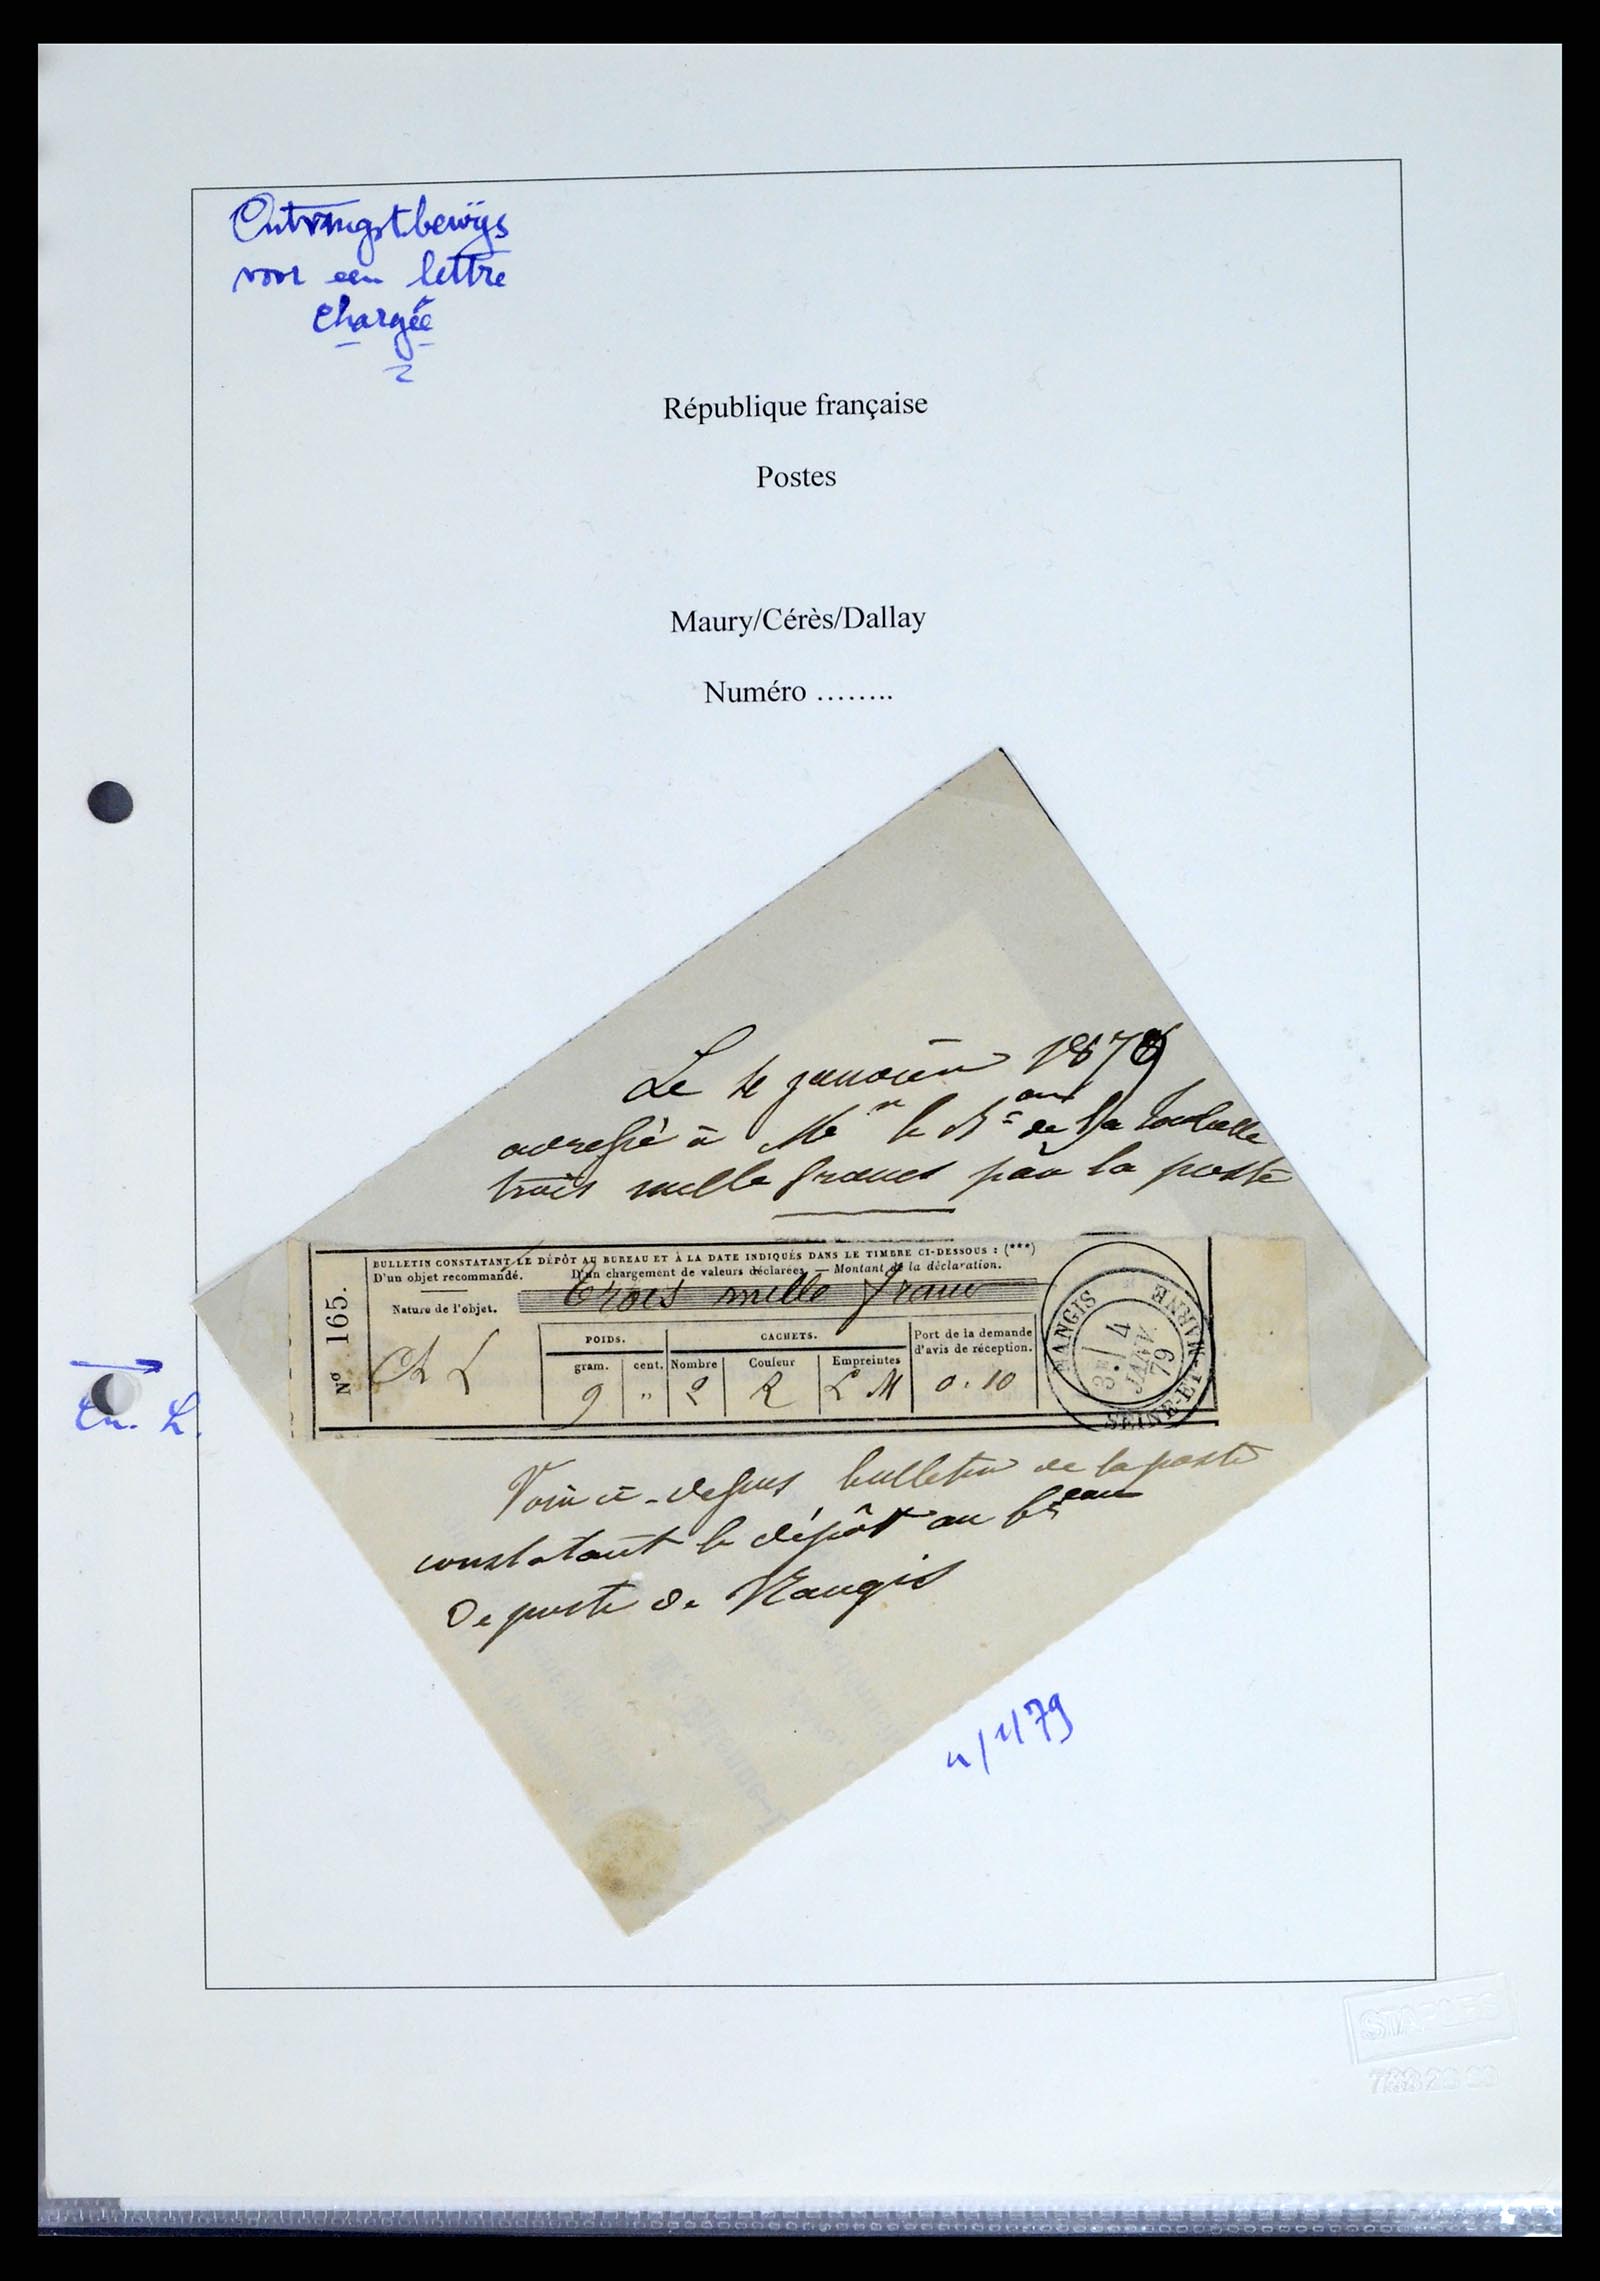 Ontvangstbewijs
voor een lettre
chargée
République française
Postes
Maury/Cérès/Dallay
Numéro ........
Le 4 janvier 1879
adressé à de la
trois mille francs par la poste
No 165.
BULLETIN CONSTATANT LE DÉPÔT AU BUREAU ET À LA DATE INDIQUÉS DANS LE TIMBRE CI-DESSOUS : (***)
D'un objet recommandé. D'un chargement de valeurs déclarées. — Montant de la déclaration.
Nature de l'objet. Trois mille franc
POIDS. CACHETS. Port de la demande d'avis de réception.
gram. cent. Nombre Couleur Empreintes
Ch L 9 " 2 R L M 0.10
NANGIS 3E 4 JANV. 79 SEINE-ET-MARNE
Ch. L.
Voir ci-dessus bulletin de la poste
constatant le dépôt au beau
de poste de Nangis
4/1/79
STAPLES